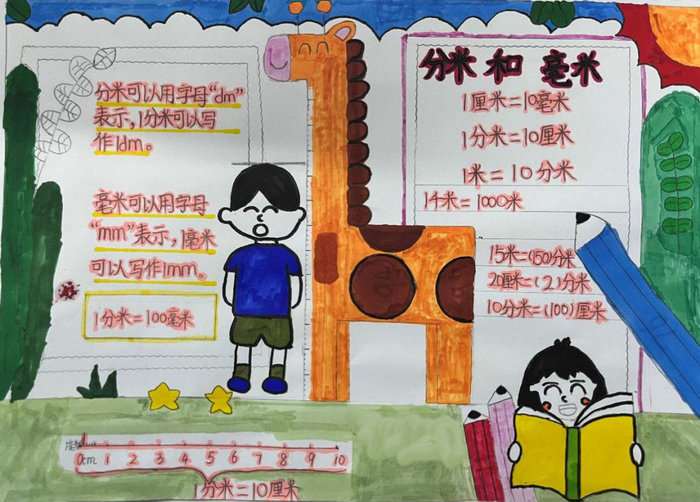 分米可以用字母“dm”
表示，1分米可以写
作1dm。
毫米可以用字母
“mm”表示，1毫米
可以写作1mm。
1分米=100毫米
分米和毫米
1厘米=10毫米
1分米=10厘米
1米=10分米
1千米=1000米
15米=(150)分米
20厘米=(2)分米
10分米=(100)厘米
0cm 1 2 3 4 5 6 7 8 9 10
1分米=10厘米